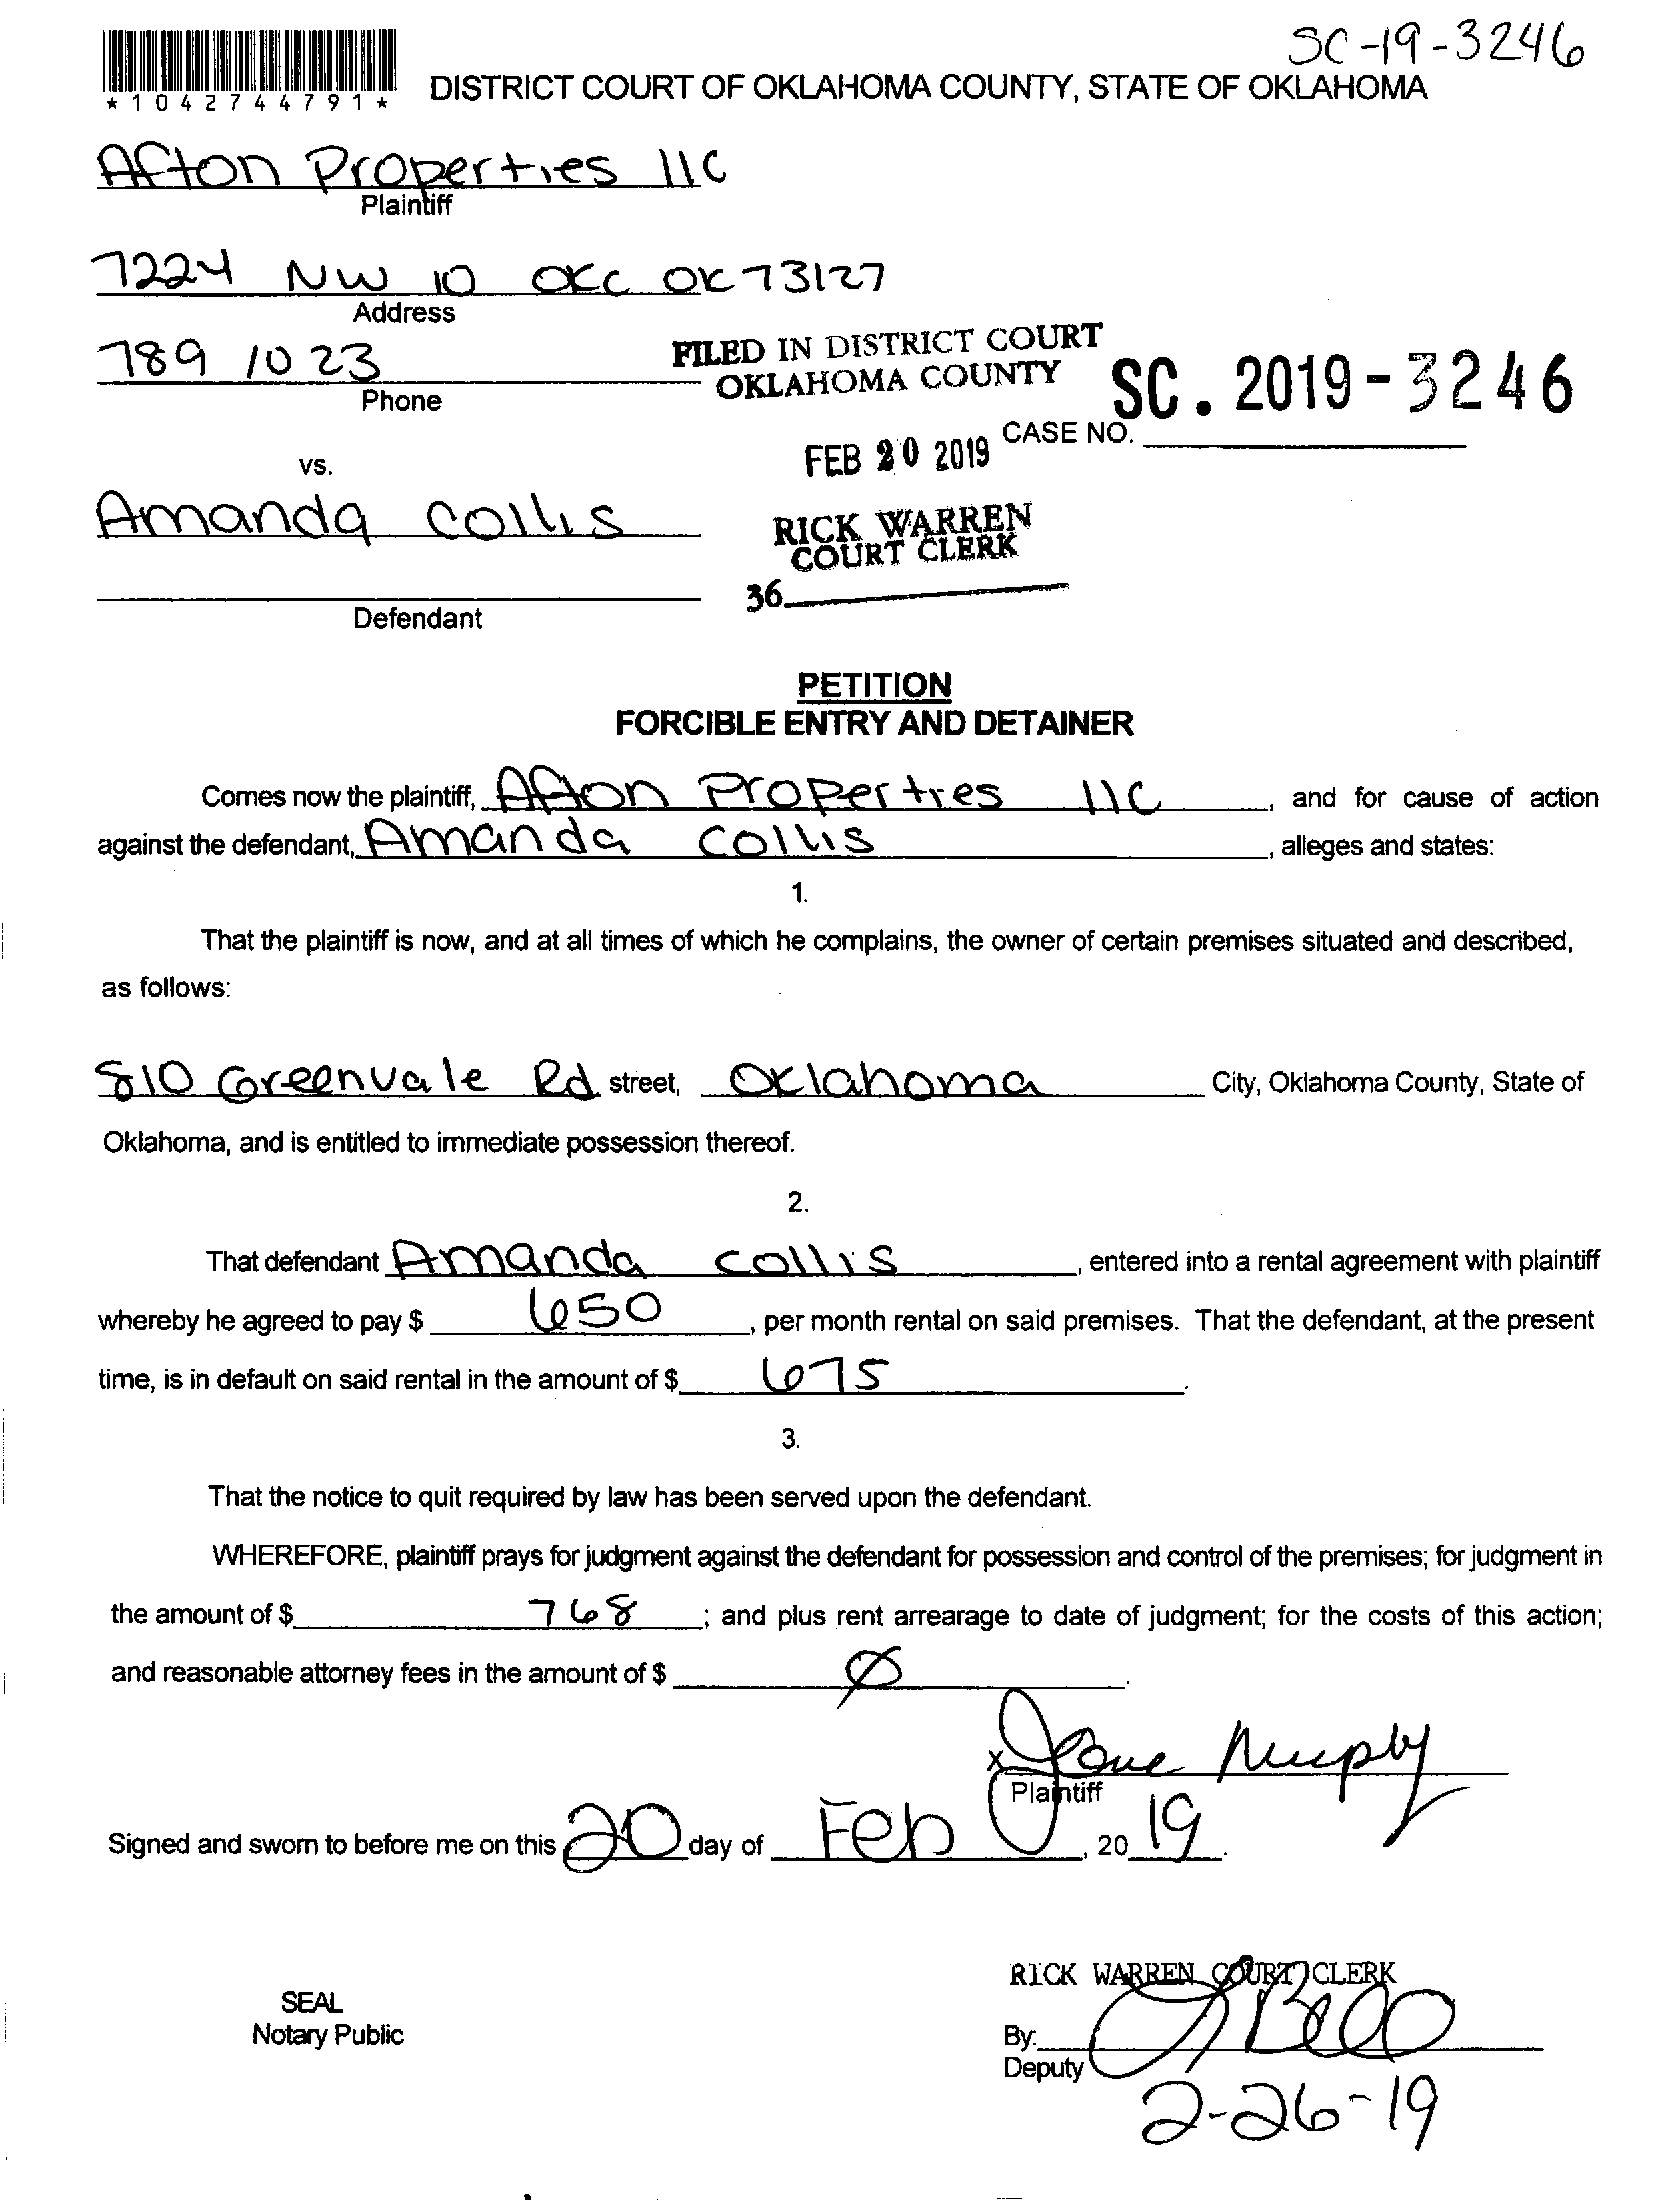 SC-19-3246
*1042744791*
DISTRICT COURT OF OKLAHOMA COUNTY, STATE OF OKLAHOMA
Afton Properties llC
Plaintiff
7224 NW 10 OKC OK 73127
Address
789 1023
Phone
FILED IN DISTRICT COURT
OKLAHOMA COUNTY
SC. 2019-3246
CASE NO.
FEB 20 2019
vs.
Amanda Collis
RICK WARREN
COURT CLERK
36
Defendant
PETITION
FORCIBLE ENTRY AND DETAINER
Comes now the plaintiff, Afton Properties llC, and for cause of action
against the defendant, Amanda Collis, alleges and states:
1.
That the plaintiff is now, and at all times of which he complains, the owner of certain premises situated and described,
as follows:
810 Greenvale Rd street, Oklahoma City, Oklahoma County, State of
Oklahoma, and is entitled to immediate possession thereof.
2.
That defendant Amanda Collis, entered into a rental agreement with plaintiff
whereby he agreed to pay $ 650, per month rental on said premises. That the defendant, at the present
time, is in default on said rental in the amount of $ 675.
3.
That the notice to quit required by law has been served upon the defendant.
WHEREFORE, plaintiff prays for judgment against the defendant for possession and control of the premises; for judgment in
the amount of $ 768; and plus rent arrearage to date of judgment; for the costs of this action;
and reasonable attorney fees in the amount of $ Ø.
x
Plaintiff
Signed and sworn to before me on this 20 day of Feb, 2019.
RICK WARREN COURT CLERK
SEAL
Notary Public
By:
Deputy
2-26-19